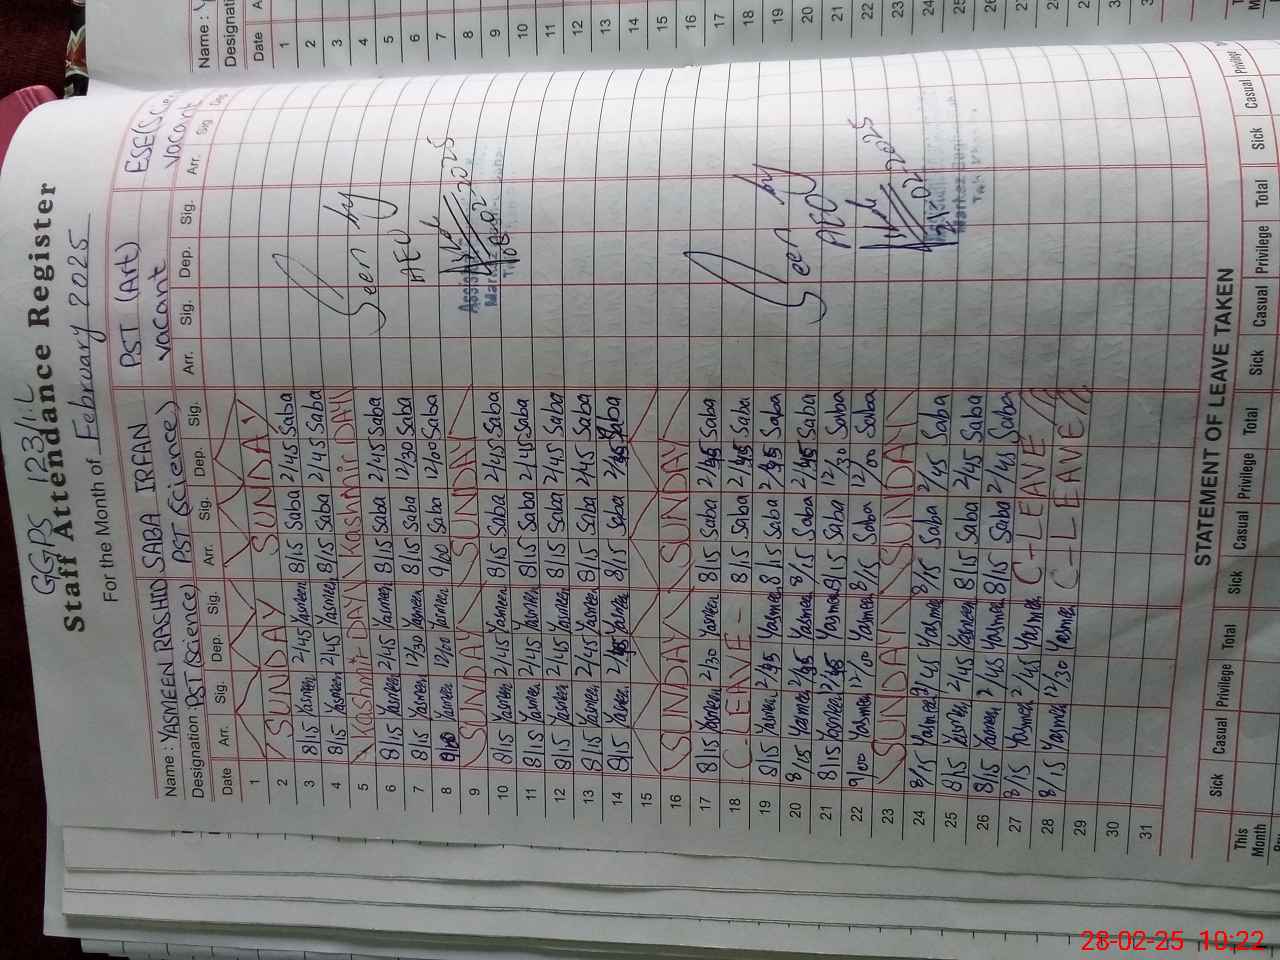 GGPS 123/1.L
Staff Attendance Register
For the Month of February 2025
Name : YASMEEN RASHID SABA IRFAN PST (Art) ESE(Sci
Designation PST (Science) PST (Science) vacant vacant
Date Arr. Sig. Dep. Sig. Arr. Sig. Dep. Sig. Arr. Sig. Dep. Sig. Arr. Sig. Dep
1
2 SUNDAY SUNDAY
3 8/15 Yasmeen 2/45 Yasmeen 8/15 Saba 2/45 Saba
4 8/15 Yasmeen 2/45 Yasmeen 8/15 Saba 2/45 Saba
5 Kashmir DAY Kashmir DAY
6 8/15 Yasmeen 2/45 Yasmeen 8/15 Saba 2/45 Saba
7 8/15 Yasmeen 12/30 Yasmeen 8/15 Saba 12/30 Saba
8 Yasmeen 12/00 Yasmeen 9/00 Saba 12/00 Saba
9 SUNDAY SUNDAY
10 8/15 Yasmeen 2/45 Yasmeen 8/15 Saba 2/45 Saba
11 8/15 Yasmeen 2/45 Yasmeen 8/15 Saba 2/45 Saba
12 8/15 Yasmeen 2/45 Yasmeen 8/15 Saba 2/45 Saba
13 8/15 Yasmeen 2/45 Yasmeen 8/15 Saba 2/45 Saba
14 8/15 Yasmeen Yasmeen 8/15 Saba Saba
15
16 SUNDAY SUNDAY
17 8/15 Yasmeen 2/30 Yasmeen 8/15 Saba Saba
18 C-LEAVE - 8/15 Saba Saba
19 8/15 Yasmeen Yasmeen 8/15 Saba Saba
20 8/15 Yasmeen Yasmeen 8/15 Saba Saba
21 8/15 Yasmeen Yasmeen 8/15 Saba 12/30 Saba
22 9/00 Yasmeen 12/00 Yasmeen 8/15 Saba 12/00 Saba
23 SUNDAY SUNDAY
24 8/15 Yasmeen 2/45 Yasmeen 8/15 Saba 2/45 Saba
25 8/15 Yasmeen 2/45 Yasmeen 8/15 Saba 2/45 Saba
26 8/15 Yasmeen 2/45 Yasmeen 8/15 Saba 2/45 Saba
27 8/15 Yasmeen 2/45 Yasmeen C-LEAVE
28 8/15 Yasmeen 12/30 Yasmeen C-LEAVE
29
30
31
Seen by
AEO
08-02-2025
Seen by
AEO
21-02-2025
STATEMENT OF LEAVE TAKEN
Sick Casual Privilege Total Sick Casual Privilege Total Sick Casual Privilege Total Sick Casual Privilege
This Month
Name :
Designati
Date A
1
2
3
4
5
6
7
8
9
10
11
12
13
14
15
16
17
18
19
20
21
22
23
24
25
26
27
28
29
28-02-25 10:22